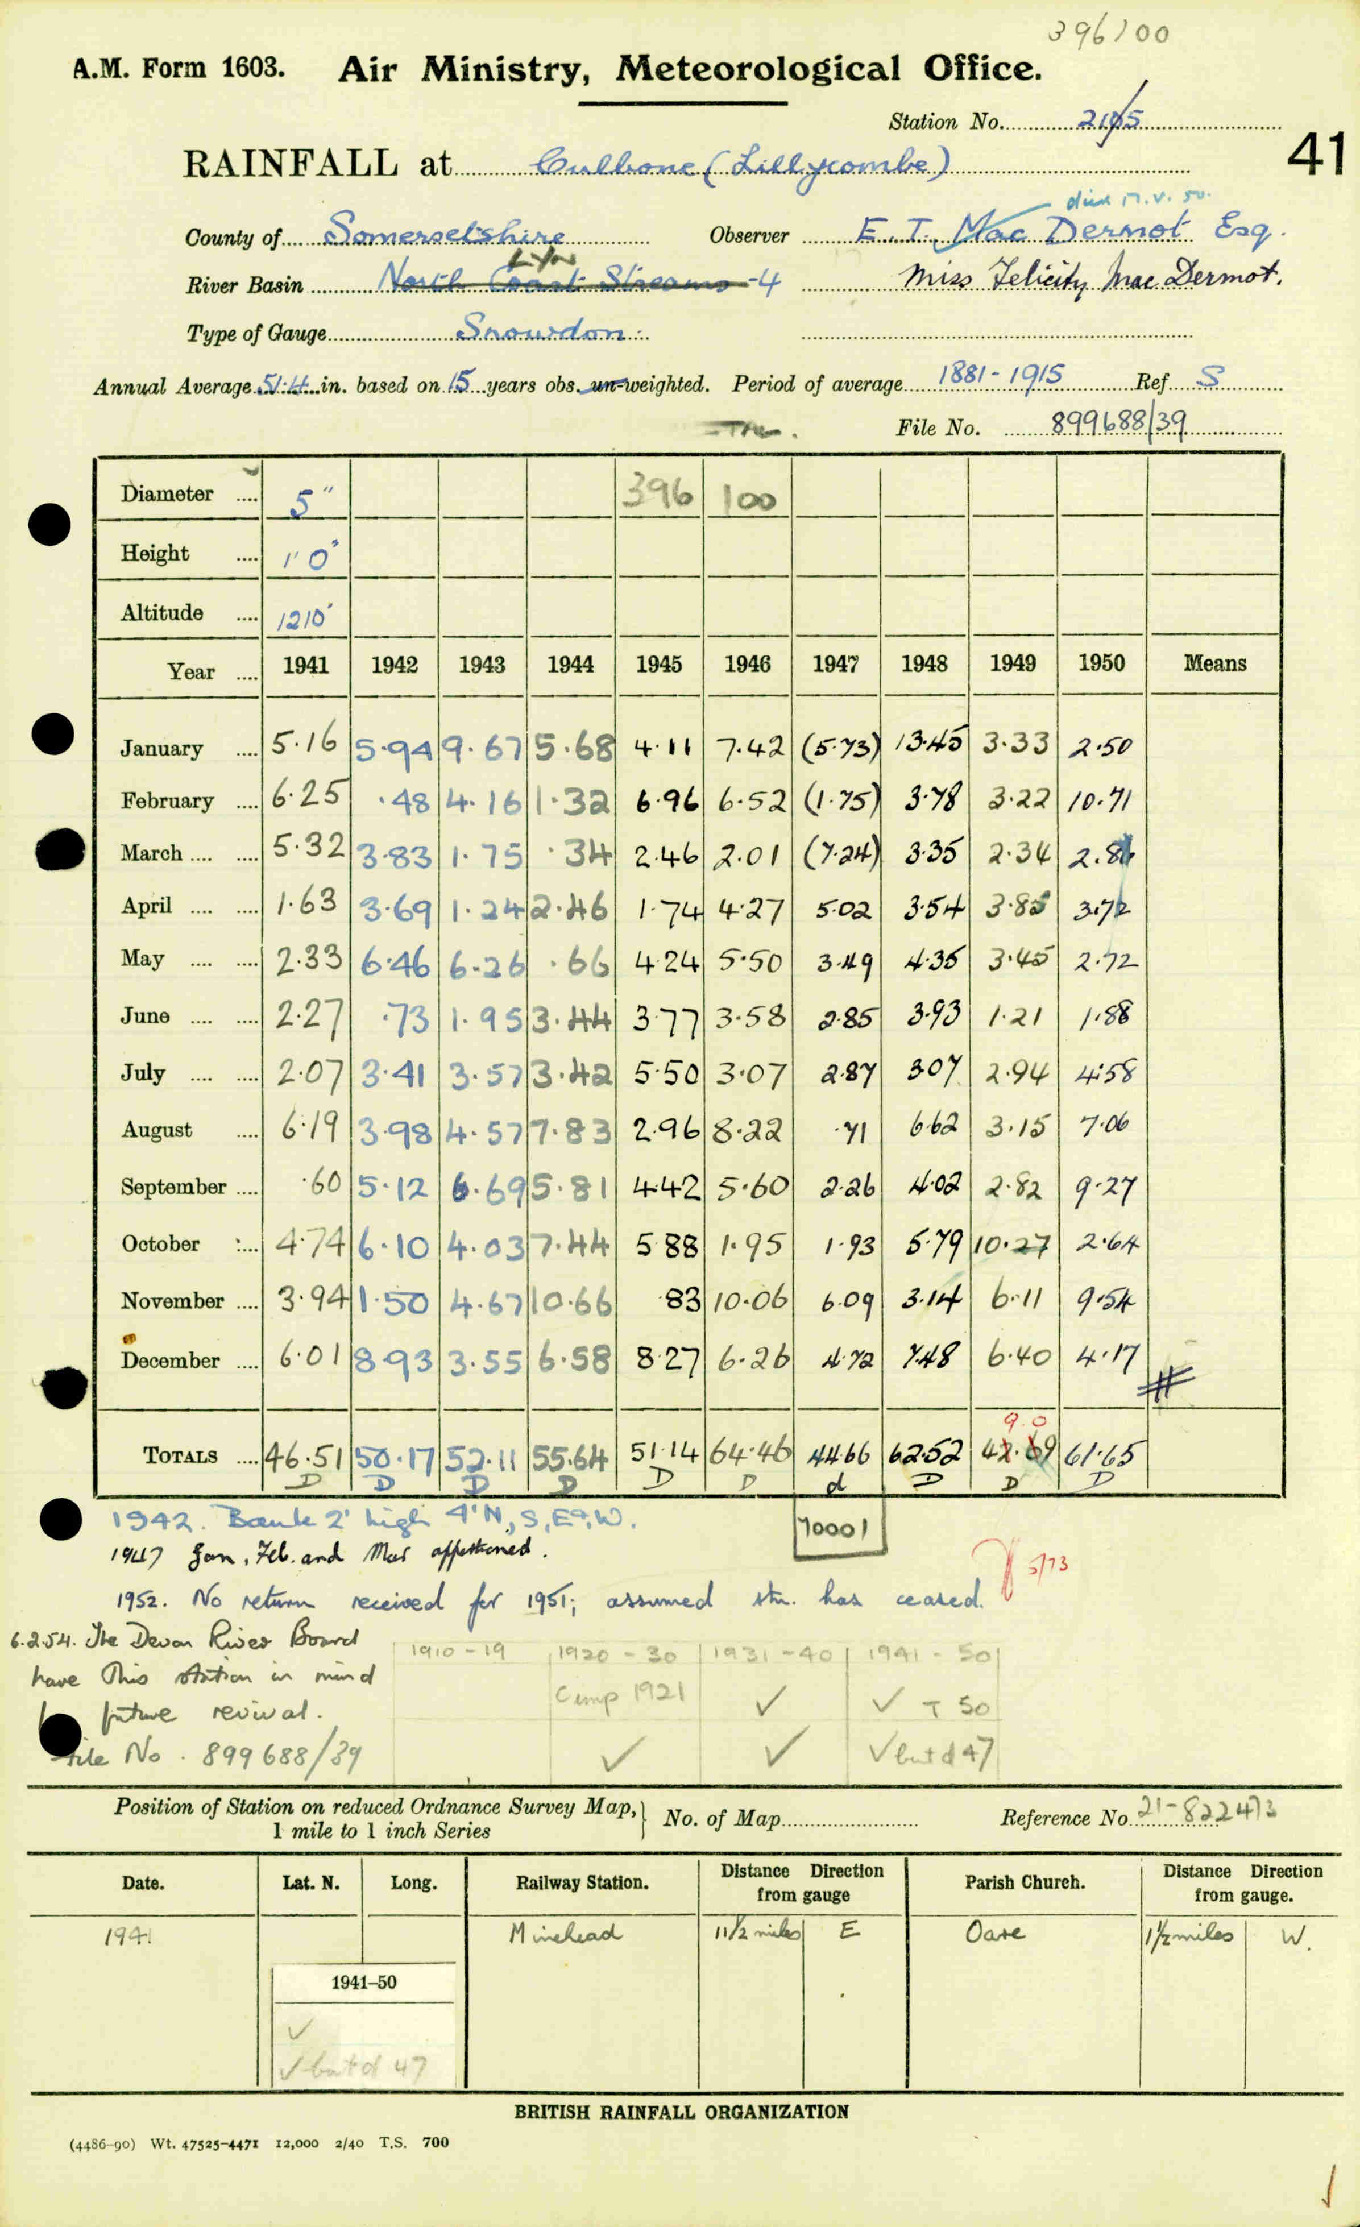 396/00
A.M. Form 1603. Air Ministry, Meteorological Office.
Station No. 2105
41
RAINFALL at Culbone (Lillycombe)
died 17.V.50.
County of Somersetshire Observer E. T. Mac Dermot Esq.
Lyn
River Basin North Coast Streams -4 Miss Felicity Mac Dermot.
Type of Gauge Snowdon.
Annual Average 51.4 in. based on 15 years obs. un-weighted. Period of average 1881-1915 Ref S
File No. 899688/39
Diameter .... 5" 396 100
Height .... 1' 0"
Altitude .... 1210'
Year .... 1941 1942 1943 1944 1945 1946 1947 1948 1949 1950 Means
January .... 5.16 5.94 9.67 5.68 4.11 7.42 (5.73) 13.45 3.33 2.50
February .... 6.25 .48 4.16 1.32 6.96 6.52 (1.75) 3.78 3.22 10.71
March .... .... 5.32 3.83 1.75 .34 2.46 2.01 (7.24) 3.35 2.34 2.86
April .... .... 1.63 3.69 1.24 2.46 1.74 4.27 5.02 3.54 3.85 3.72
May .... .... 2.33 6.46 6.26 .66 4.24 5.50 3.49 4.35 3.45 2.72
June .... .... 2.27 .73 1.95 3.44 3.77 3.58 2.85 3.93 1.21 1.88
July .... .... 2.07 3.41 3.57 3.42 5.50 3.07 2.87 3.07 2.94 4.58
August .... 6.19 3.98 4.57 7.83 2.96 8.22 .71 6.62 3.15 7.06
September .... .60 5.12 6.69 5.81 4.42 5.60 2.26 4.02 2.82 9.27
October .... 4.74 6.10 4.03 7.44 5.88 1.95 1.93 5.79 10.27 2.64
November .... 3.94 1.50 4.67 10.66 .83 10.06 6.09 3.14 6.11 9.54
December .... 6.01 8.93 3.55 6.58 8.27 6.26 4.72 7.48 6.40 4.17
9.0
TOTALS .... 46.51 50.17 52.11 55.64 51.14 64.46 44.66 62.52 42.69 61.65
D D D D D D d D D D
1942. Bank 2' high 4' N, S, E & W.
70001
1947 Jan, Feb. and Mar apportioned.
5/73
1952. No return received for 1951; assumed stn. has ceased.
6.2.54. The Devon River Board
have this station in mind
future revival.
File No. 899688/39
1910-19 1920-30 1931-40 1941-50
Comp 1921 ✓ ✓ T 50
✓ ✓ ✓ but d 47
Position of Station on reduced Ordnance Survey Map, 1 mile to 1 inch Series No. of Map Reference No. 21-822473
Date. Lat. N. Long. Railway Station. Distance from gauge Direction Parish Church. Distance Direction from gauge.
1941 Minehead 11½ miles E Oare 1½ miles W.
1941-50
✓
✓ but d 47
BRITISH RAINFALL ORGANIZATION
(4486-90) Wt. 47525-4471 12,000 2/40 T.S. 700